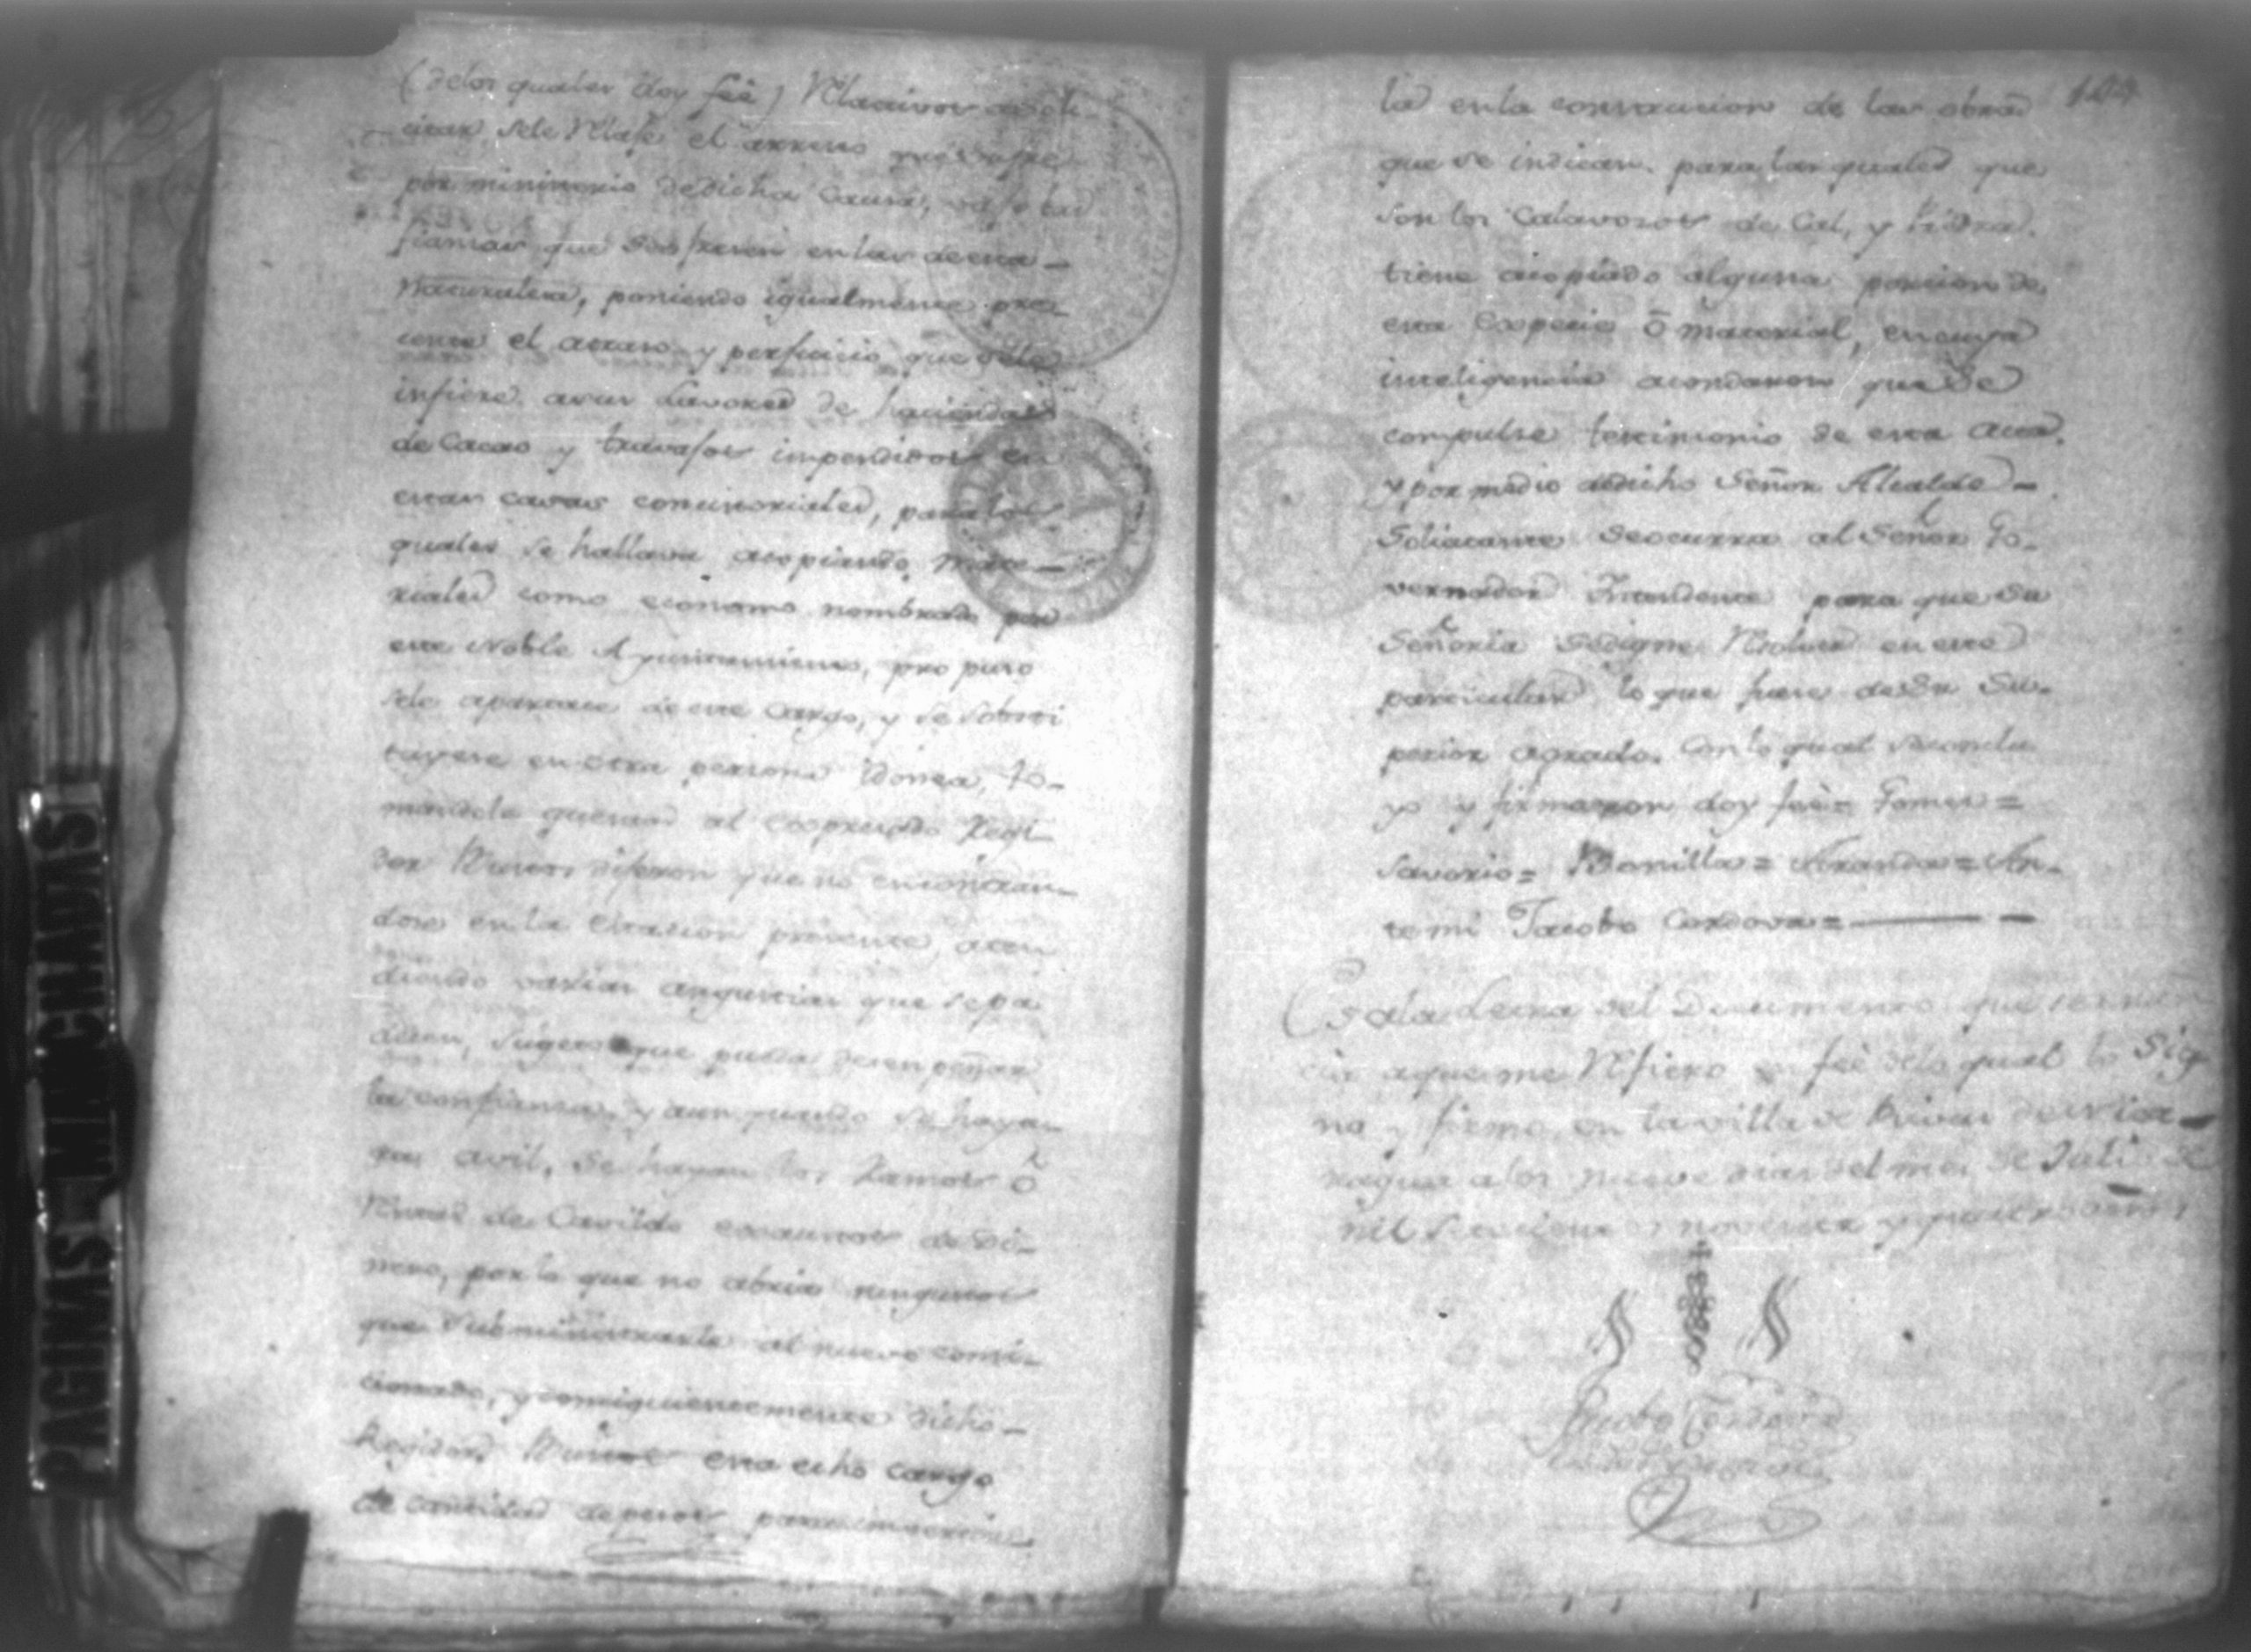 (delos quales doy feè) Relativos asoli
citar sele Relaje el arresto que sufre
por ministerio dedicha Causa, vajo las
fianzas que seofrecen enlas deesta
Naturaleza, poniendo igualmente pre-
sente el atraso y perjuicio que sele
infiere asus Lavores de haciendas
de Cacao y travajos impendidos en
estas casas concistoriales, para los
quales se hallava acopiando mate-
riales como economo nombrado por
este Noble Ayuntamiento, propuso
sele apartase de este Cargo, y se sobsti
tuyese en otra persona idonea, to-
mandole quentas al Expresado Regi
dor Muños, dijeron que no encontran-
dose en la estacion presente, aten
diendo varias angustias que sepa
decen, sugeto que pueda desenpeñar
la confianza, y aun quando se haya-
se avil, se hayan los Ramos ô
Rentas de Cavildo exsaustos de di-
nero, por lo que no abria ningunos
que subministrarle al nuevo comi-
cionado, y consiguientemente dicho-
Regidor Muños esta echo cargo
de cantidad depesos para imbertir
la enla construccion de las obras
que se indican. para las quales que
son los Calavozos de Cal, y Piedra.
tiene acopiado alguna porcion de
esta Expecie ô material, encuya
inteligencia acordaron que se
compulse testimonio de esta Acta.
y por medio dedicho Señor Alcalde-
Soliatante seocurra al Señor Go-
vernador Intendente para que su
Señoria sedigne Resolver en este
particular lo que fuere desu Su-
perior agrado. Con lo qual seconclu
yo y firmaron doy feè= Gomes=
Savorio= Bonilla= Aranda= An-
temi Jacobo Cordova=
Es ala Letra del Documento que
aqueme Refiero en feè delo qual lo Sig
no y firmo en lavilla de Rivas de Nica-
ragua alos nueve dias del mes de Juli de
mil setecientos noventa y
Jacobo Cordova